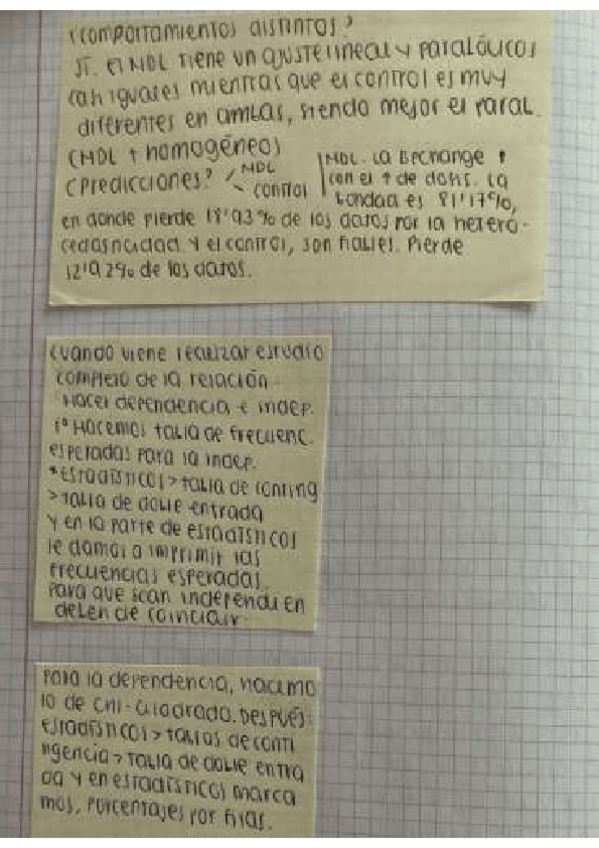 ¿comportamientos distintos?
Sí. El MDL tiene un ajuste lineal y parabólicos
casi iguales mientras que el control es muy
diferentes en ambas, siendo mejor el parab.
(MDL + homogéneo)
¿Predicciones? MDL
control
MDL. La Bechange ↑
con el ↑ de dosis. La
bondad es 81'17%,
en donde pierde 18'93% de los datos por la hetero-
cedasticidad y el control, son fiables. Pierde
12'92% de los datos.
Cuando viene realizar estudio
completo de la relación.
Hacer dependencia e indep.
1º Hacemos tabla de frecuenc.
esperadas para la indep.
*Estadísticos > tabla de conting
> tabla de doble entrada
y en la parte de estadísticos
le damos a imprimir las
frecuencias esperadas.
Para que sean independien
deben de coincidir
Para la dependencia, hacemo
lo de chi-cuadrado. Después:
estadísticos > tablas de conti
ngencia > tabla de doble entra
da y en estadísticos marca
mos, porcentajes por filas.